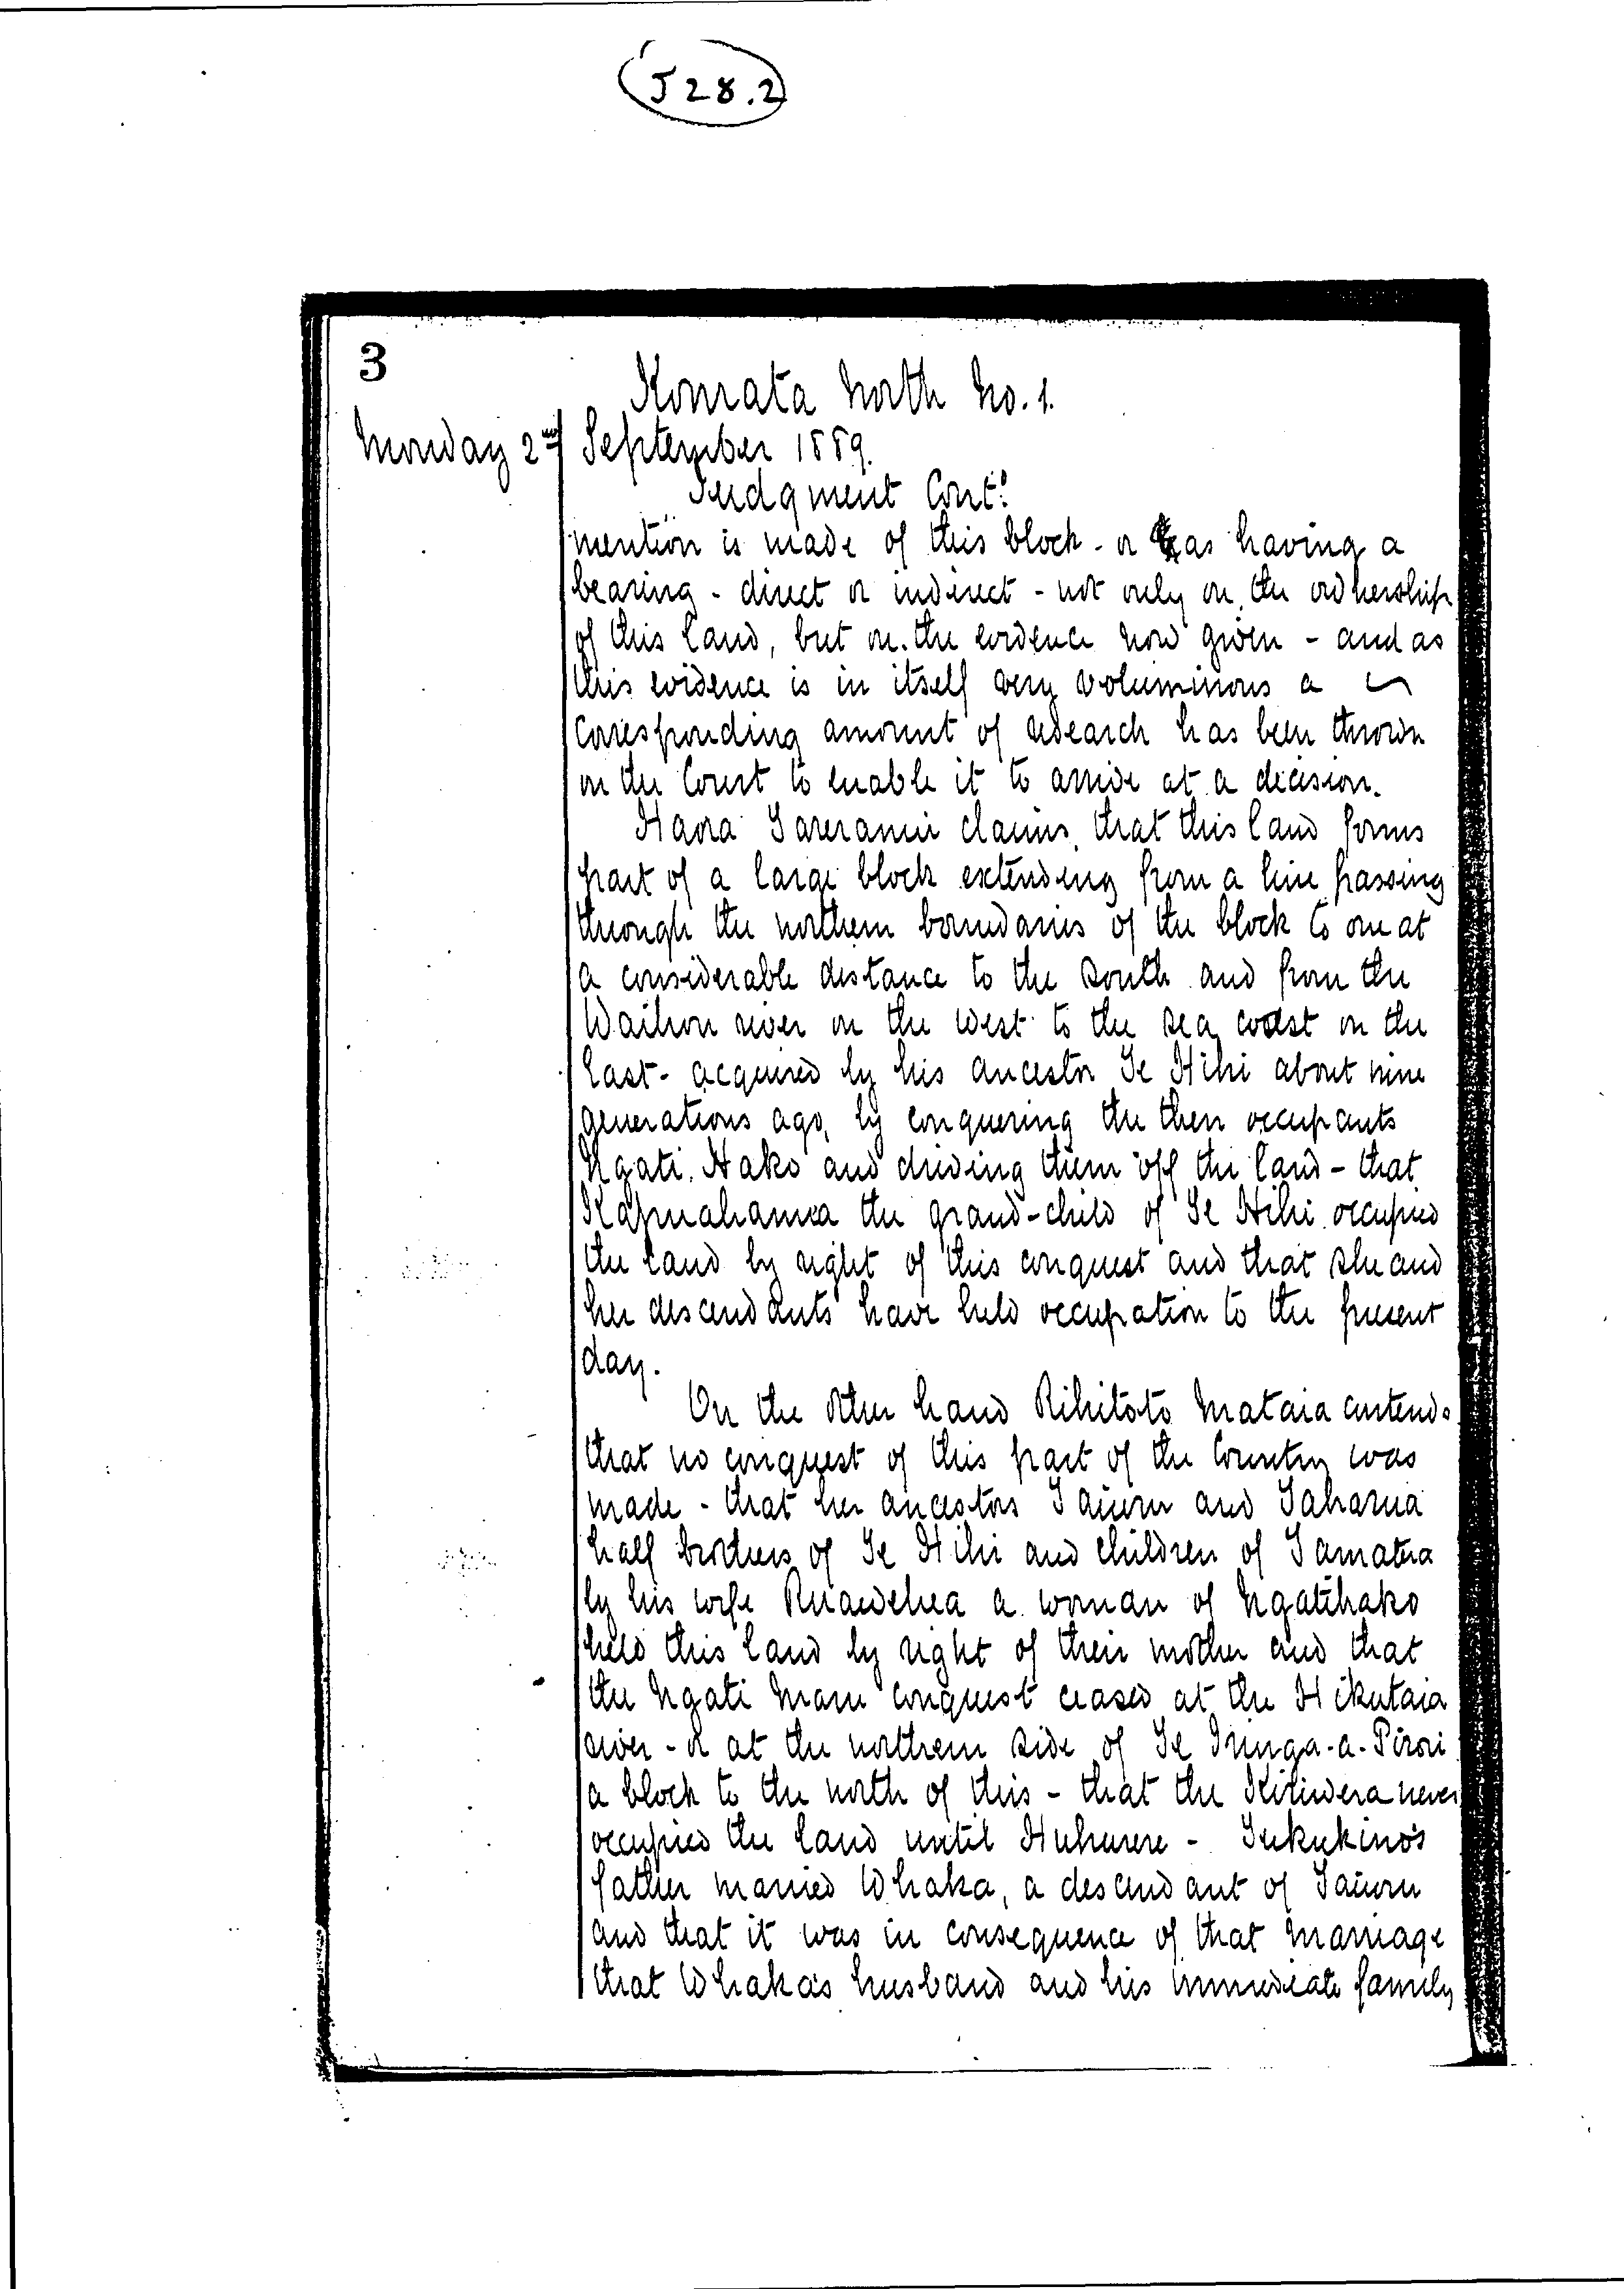 J28.2
3
Komata North No. 1.
Monday 2nd September 1889.
Judgment Contd
mention is made of this block - or as having a
bearing - direct or indirect - not only on the ownership
of this land, but on the evidence now given - and as
this evidence is in itself very voluminous a
corresponding amount of research has been thrown
on the Court to enable it to arrive at a decision.
Haora Tareranui claims, that this land forms
part of a large block extending from a line passing
through the northern boundaries of the block to one at
a considerable distance to the south and from the
Waihou river on the west to the sea coast on the
East - acquired by his ancestor Te Hihi about nine
generations ago, by conquering the then occupants
Ngati Hako and driving them off the land - that
the grand-child of Te Hihi occupied
the land by right of this conquest and that she and
her descendants have held occupation to the present
day.
On the other hand Rihitoto Mataia contends
that no conquest of this part of the Country was
made - that her ancestors Taiuru and Taharua
half brothers of Te Hihi and children of Tamatera
by his wife Ruawehea a woman of Ngatihako
held this land by right of their mother and that
the Ngati Maru conquest ceased at the Hikutaia
river - or at the northern side of Te Iringa-a-Pirori
a block to the north of this - that the Kiriwera never
occupied the land until Huhurere - Tukukino's
father married Whaka, a descendant of Taiuru
and that it was in consequence of that marriage
that Whaka's husband and his immediate family